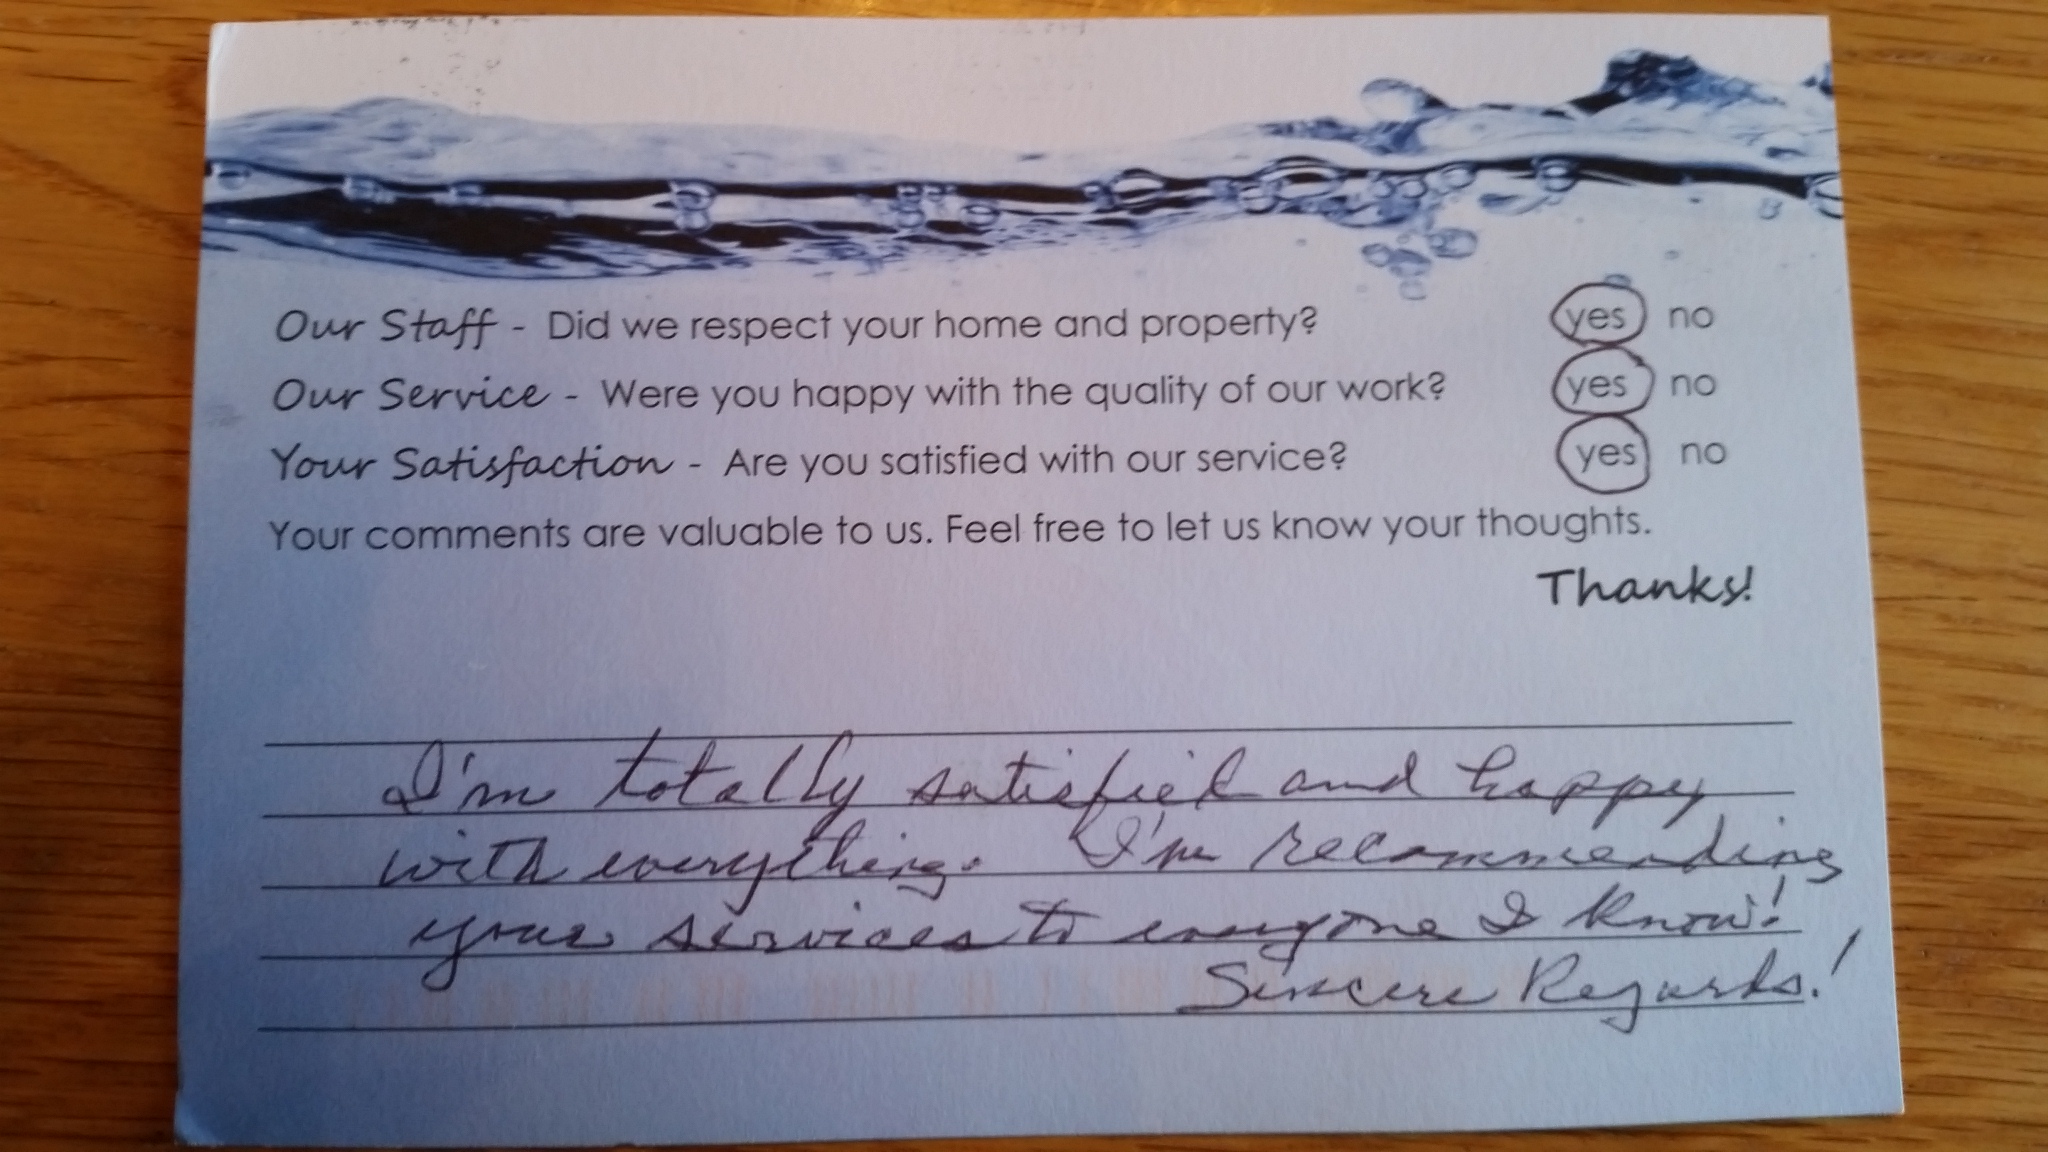 Our Staff - Did we respect your home and property? yes no
Our Service - Were you happy with the quality of our work? yes no
Your Satisfaction - Are you satisfied with our service? yes no
Your comments are valuable to us. Feel free to let us know your thoughts.
Thanks!
I'm totally satisfied and happy
with everything. I'm recommending
your services to everyone I know!
Sincere Regards!